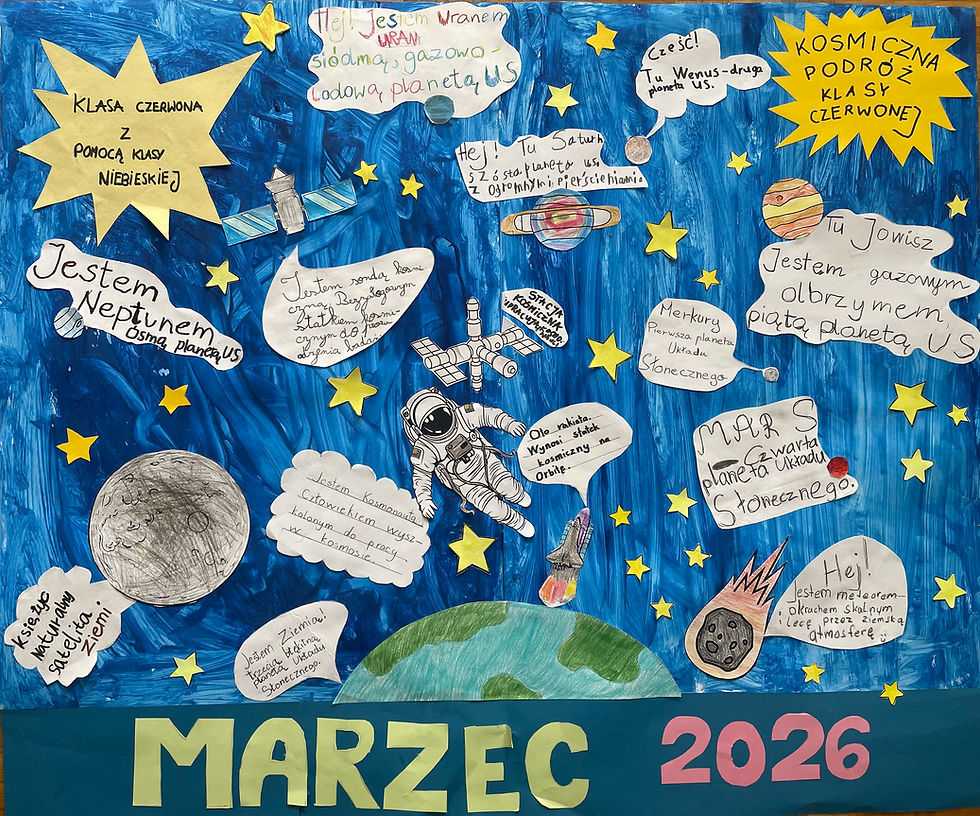 KLASA CZERWONA
Z
POMOCĄ KLASY
NIEBIESKIEJ
Hej! Jestem Uranem
URAN
siódmą, gazowo-
lodową planetą US
Cześć!
Tu Wenus-druga
planeta US.
KOSMICZNA
PODRÓŻ
KLASY
CZERWONEJ
Hej! Tu Saturn
szósta planeta US,
z ogromnymi pierścieniami.
Tu Jowisz
Jestem gazowym
olbrzymem,
piątą planetą US
Jestem
Neptunem
ósmą planetą US
Jestem sondą kosmi
czną. Bezzałogowym
statkiem kosmi-
cznym do
badań
STACJA
KOSMICZNA
Merkury
Pierwsza planeta
Układu
Słonecznego
Oto rakieta.
Wynosi statek
kosmiczny na
Orbitę.
MARS
- Czwarta
planeta Układu
Słonecznego.
Jestem Kosmonautą
Człowiekiem wysz-
kolonym do pracy
w kosmosie.
Księżyc
Naturalny
satelita
Ziemi
Jestem Ziemią!
trzecią błękitną
planetą Układu
Słonecznego.
Hej!
Jestem meteorem-
okruchem skalnym
i lecę przez ziemską
atmosferę
MARZEC 2026